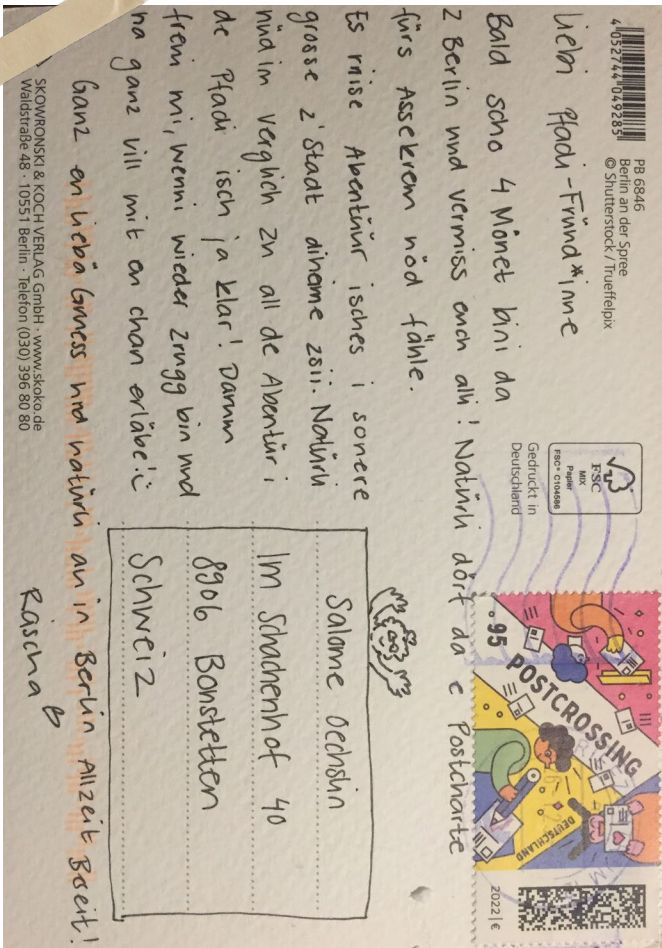 4 052744 049285
PB 6846
Berlin an der Spree
© Shutterstock / Trueffelpix
FSC
MIX
Papier
FSC® C104586
Gedruckt in
Deutschland
.95 POSTCROSSING
DEUTSCHLAND
2022 | €
Liebi Pfadi-Fründ*inne
Bald scho 4 Mönet bini da
z Berlin und vermiss euch alli! Natürli dörf da e Postcharte
fürs Assekrem nöd fähle.
Es riise Abentüür isches i sonere
grosse z'Stadt diheime zsii. Natürli
nüd im verglich zu all de Abentür i
de Pfadi isch ja klar! Darum
freui mi, wenni wieder zrugg bin und
na ganz vill mit en chan erläbe!
Ganz en liebä Gruess und natürli au in Berlin Allzeit Bereit!
Rascha
Salome Oechslin
Im Schachenhof 40
8906 Bonstetten
Schweiz
SKOWRONSKI & KOCH VERLAG GmbH · www.skoko.de
Waldstraße 48 · 10551 Berlin · Telefon (030) 396 80 80